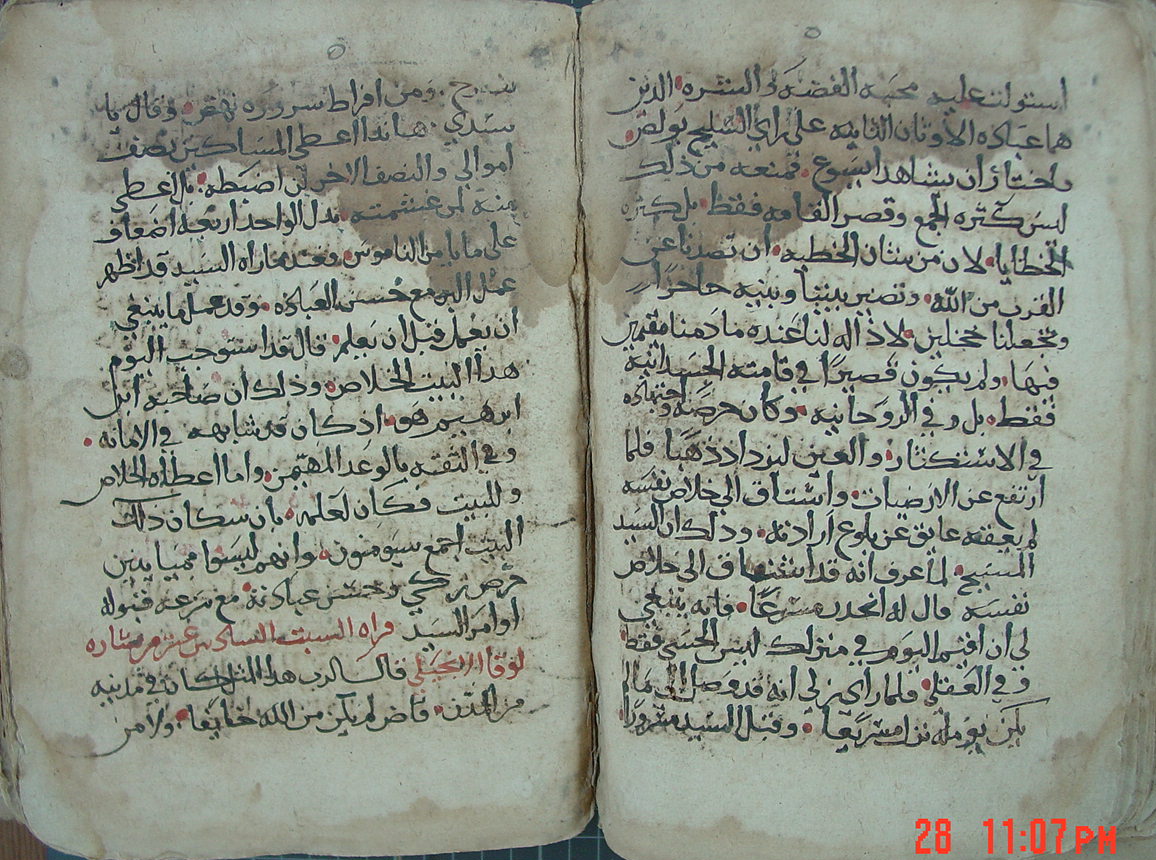 استولت عليه محبة الفضه والشره الذين
ها عباده الاوثان الثانيه على راي السليح بولص
واختار ان يشاهد ايسوع فمنعه من ذلك
ليس كثره الجمع وقصر القامه فقط بل كثره
الخطايا لان من شان الخطيه ان تصدنا عن
القرب من الله وتصير بيننا وبينه حاجزا
وتجعلنا مخجلين لا داله لنا عنده ما دمنا مقيمين
فيها ولم يكون قصيرًا في قامته الجسدانيه
فقط بل وفي الروحانيه وكان حرصه واجتهاده
في الاستكثار والعين ليزداد ذهبًا فلما
ارتفع عن الارضيات واشتاق الى خلاص نفسه
لم يعقه عايق عن بلوع ارادته وذلك ان السيد
المسيح لما عرف انه قد اشتاق الى خلاص
نفسه قال له انحدر مسرعًا فانه ينبغي
لي ان اقيم اليوم في منزلك ليس الحسي فقط
وفي العقلي فلما راى زكي انه قد وصل الى ما لم
يكن يومله نزل مسرعًا وقبل السيد مسرورًا
ومن افراط سروره نهض وقال يا
سيدي هانذا اعطي المساكين نصف
اموالي والنصف الاخر لن اضبطه بل اعطي
منه لمن غشمته بدل الواحد اربعة اضعاف
على ما يامر الناموس وعندما راه السيد قد اظهر
عمل البر مع حسن العباده وقد عمل ما ينبغي
ان يعمل قبل ان يعلم قال قد استوجب اليوم
هدا البيت الخلاص وذلك ان صاحبه ابن
ابرهيم هو اذ كان قد شابهه في الامانه
وفي الثقه بالوعد المهتمن واما اعطاه الخلاص
وللبيت فكان لعلمه بان سكان ذلك
البيت اجمع سيومنون وانهم ليسوا مباينين
حرص زكي وحسن عبادته مع سرعه قبوله
اوامر السيد قراه السبت السادس عشر من بشاره
لوقا الانجيلي قال الرب هذا المثل كان في مدينه
من المدن قاض لم يكن من الله خايفا ولا من
28 11:07 PM